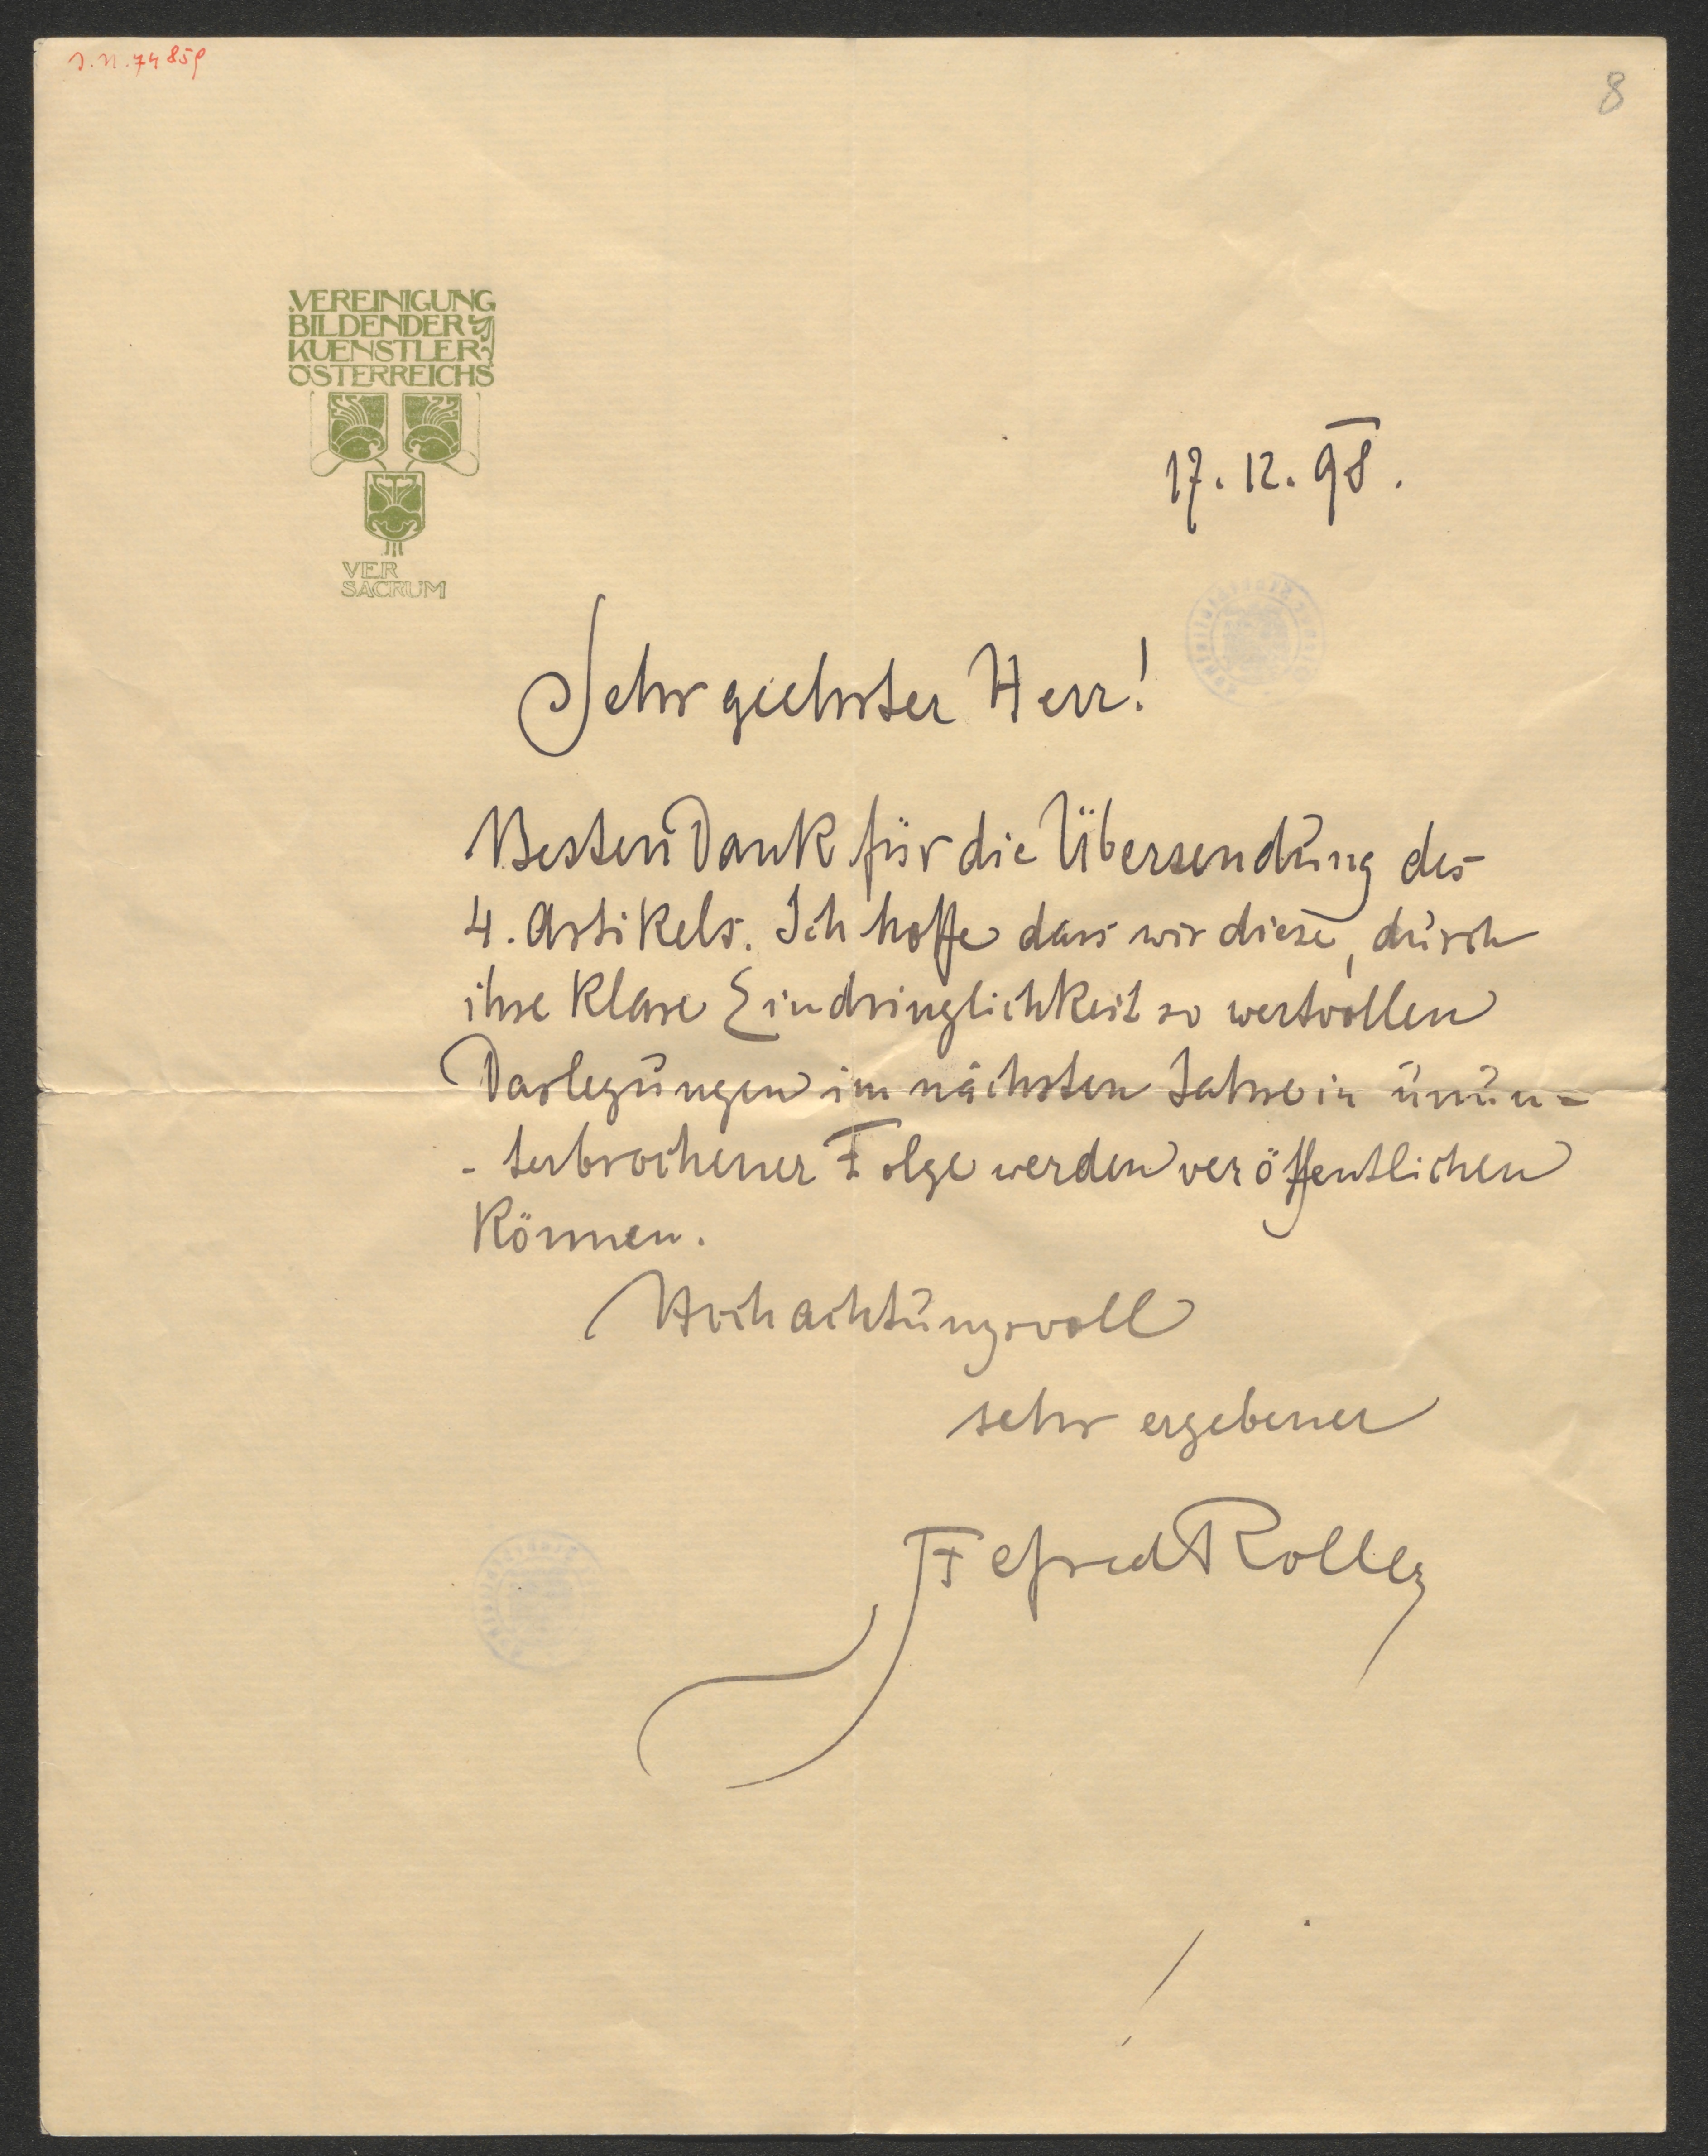 J.N. 74859
8
VEREINIGUNG
BILDENDER
KUENSTLER
ÖSTERREICHS
VER
SACRUM
17. 12. 98.
Sehr geehrter Herr!
Besten Dank für die Übersendung des
4. Artikels. Ich hoffe dass wir diese, durch
ihre klare Eindringlichkeit so wertvollen
Darlegungen im nächsten Jahre in unun-
- terbrochener Folge werden veröffentlichen
können.
Hochachtungsvoll
sehr ergebener
Alfred Roller